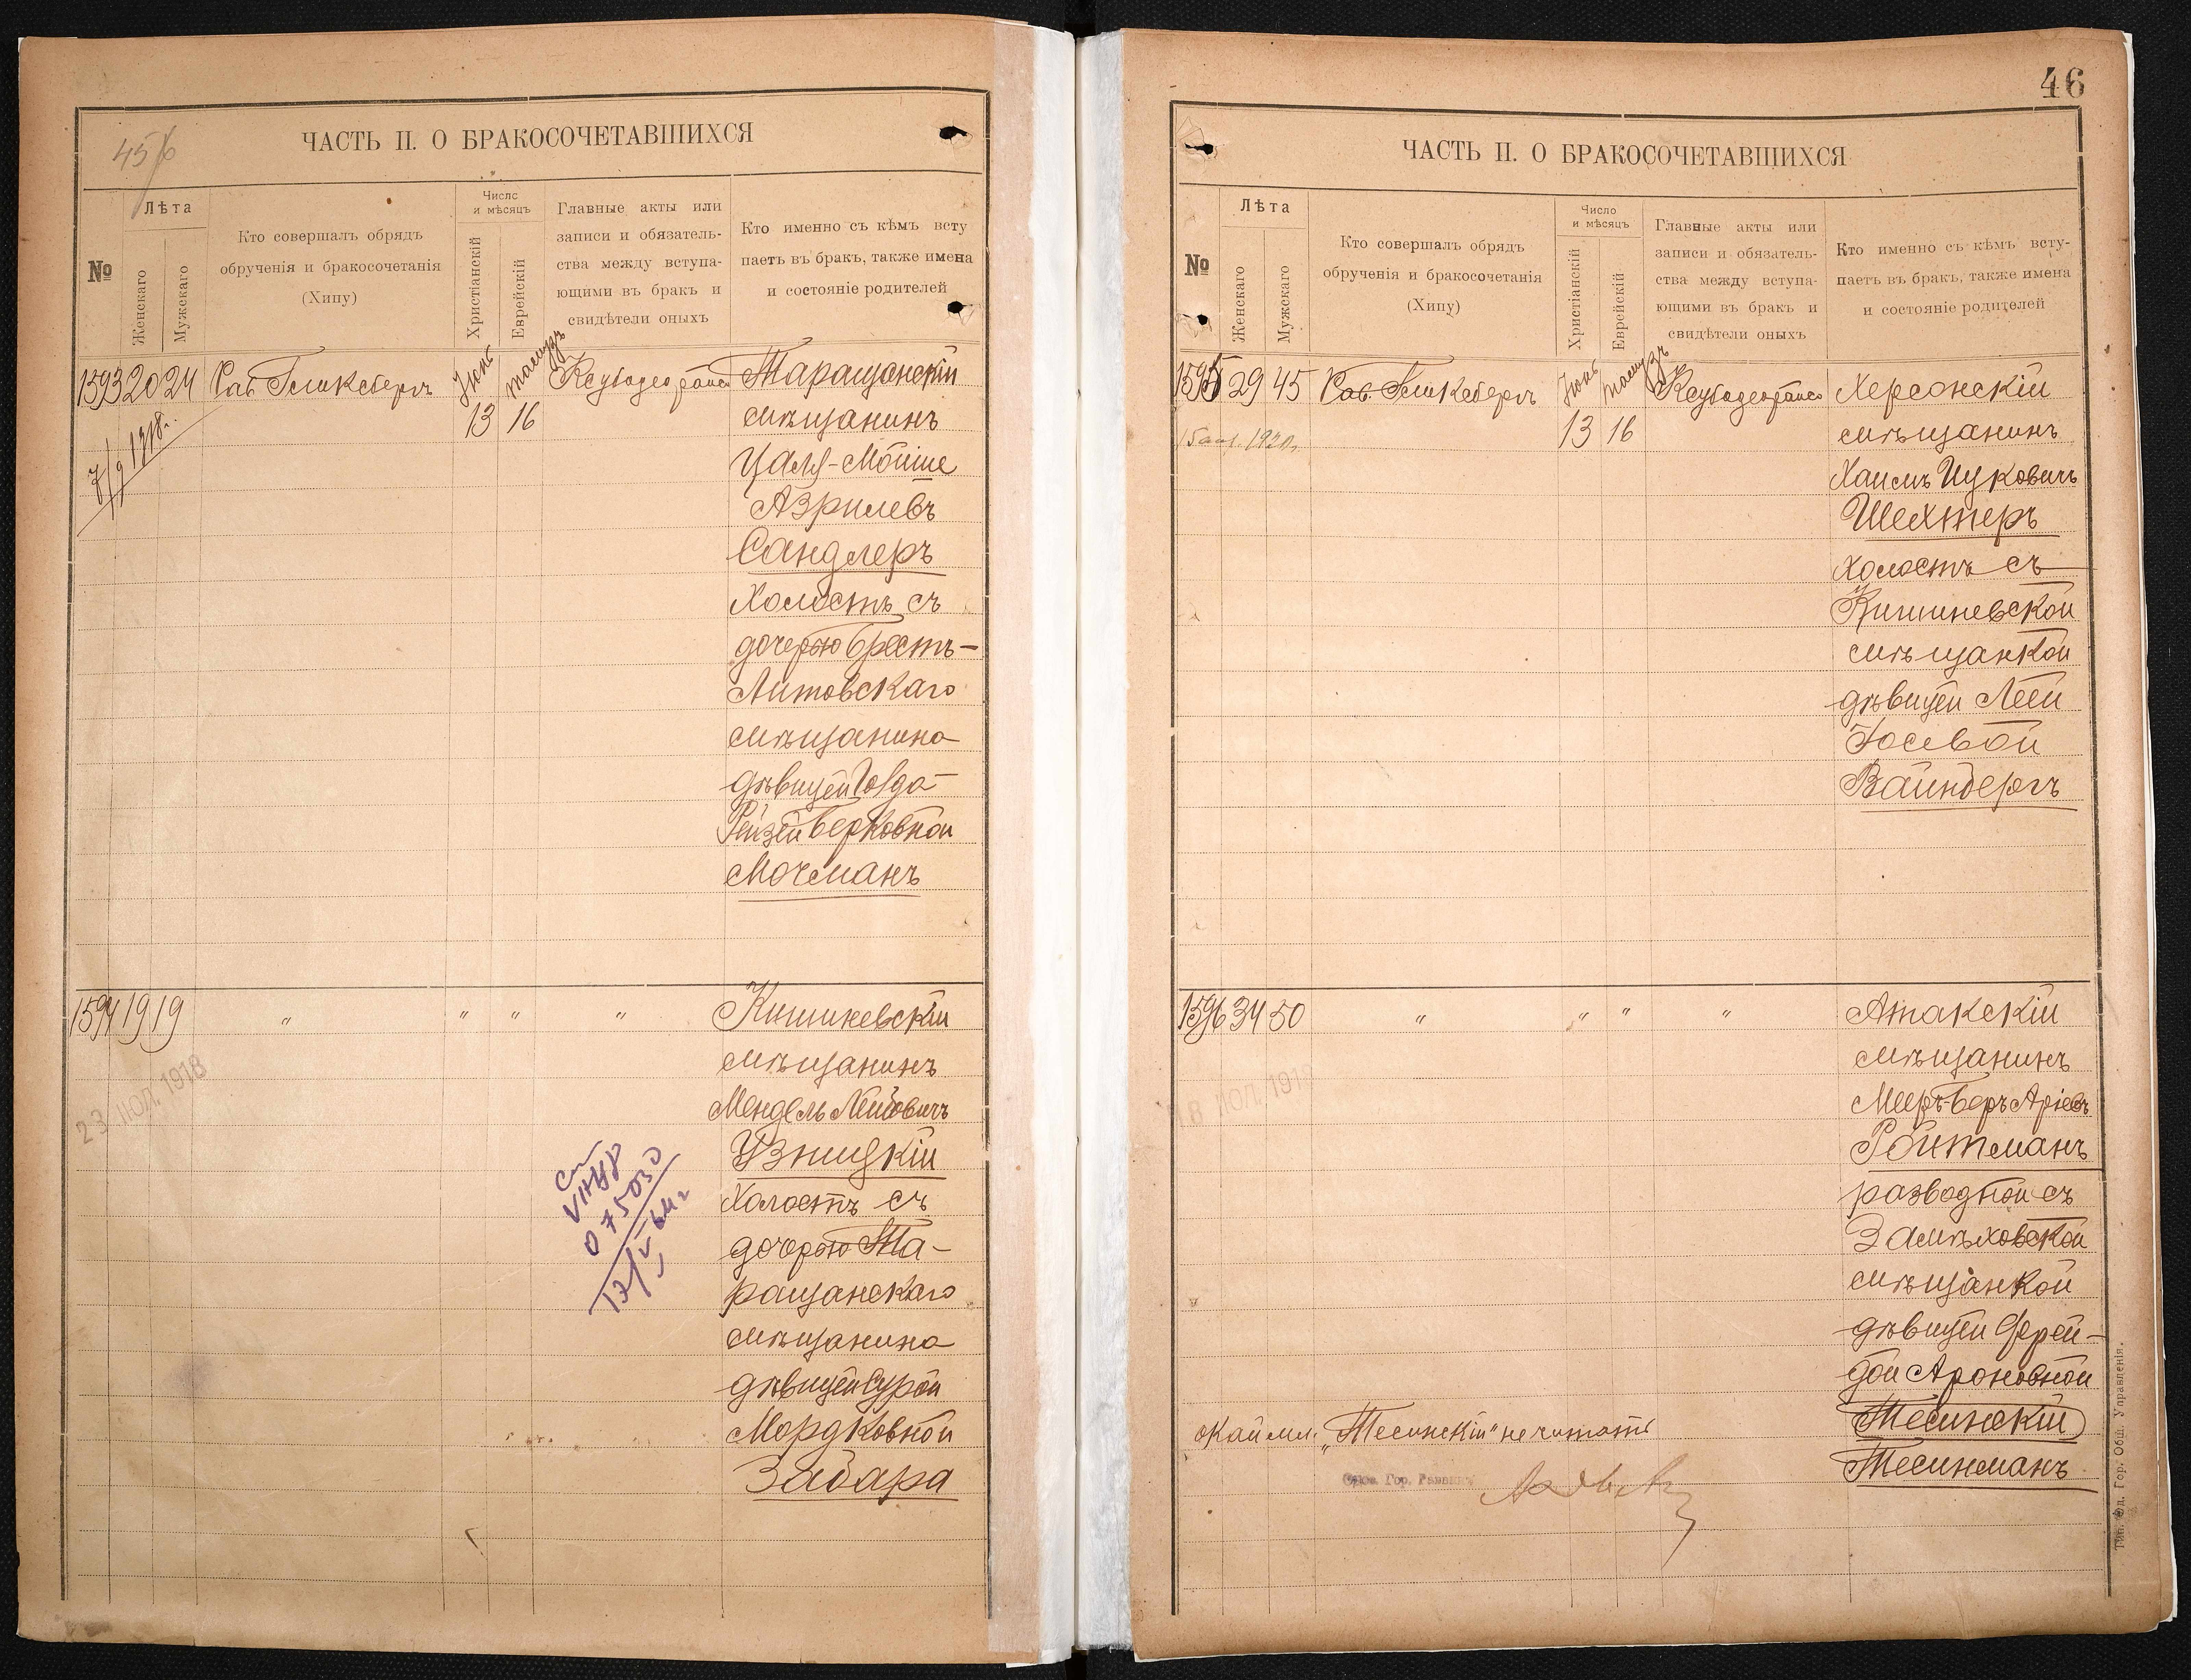 45
ЧАСТЬ II. О БРАКОСОЧЕТАВШИХСЯ
№
Лѣта
Женскаго
Мужскаго
Кто совершалъ обрядъ
обрученія и бракосочетанія
(Хипу)
Число
и мѣсяцъ
Христіанскій
Еврейскій
Главные акты или
записи и обязатель-
ства между вступа-
ющими въ бракъ и
свидѣтели оныхъ
Кто именно съ кѣмъ всту
паетъ въ бракъ, также имена
и состояніе родителей
1593 20 24 Рав. Гликсбергъ Іюнь 13 Тамузъ 16
Таращанскій
мѣщанинъ
Цаль-Мойше
Азрилевъ
Сандлеръ
Холостъ съ
дочерью Брестъ-
Литовскаго
мѣщанина
дѣвицей Голда
Рейзей Берковной
Мочманъ
1594 19 19 " " " "
Кишиневскій
мѣщанинъ
Мендель Лейбовичъ
Узницкій
Холостъ съ
дочерью Та-
ращанскаго
мѣщанина
дѣвицей Сурой
Мордковной
Забара
23 ІЮЛ. 1918
075030
46
ЧАСТЬ II. О БРАКОСОЧЕТАВШИХСЯ
№
Лѣта
Женскаго
Мужскаго
Кто совершалъ обрядъ
обрученія и бракосочетанія
(Хипу)
Число
и мѣсяцъ
Христіанскій
Еврейскій
Главные акты или
записи и обязатель-
ства между вступа-
ющими въ бракъ и
свидѣтели оныхъ
Кто именно съ кѣмъ всту-
паетъ въ бракъ, также имена
и состояніе родителей
1595 29 45 Рав. Гликсбергъ Іюнь 13 Тамузъ 16
Херсонскій
мѣщанинъ
Хаимъ Ицковичъ
Шехтеръ
холостъ съ
Кишиневской
мѣщанкой
дѣвицей Леей
Іосевой
Вайнбергъ
1596 34 50 " " " "
Атакскій
мѣщанинъ
Мееръ-Беръ Аріевъ
Ройтманъ
разводной съ
Замѣховской
мѣщанкой
дѣвицей Фрей-
дой Ароновной
Тесинскій
Тесинманъ
"Тесинскій" не читать
Гор. Раввинъ
Тип. Од. Гор. Общ. Управленія.